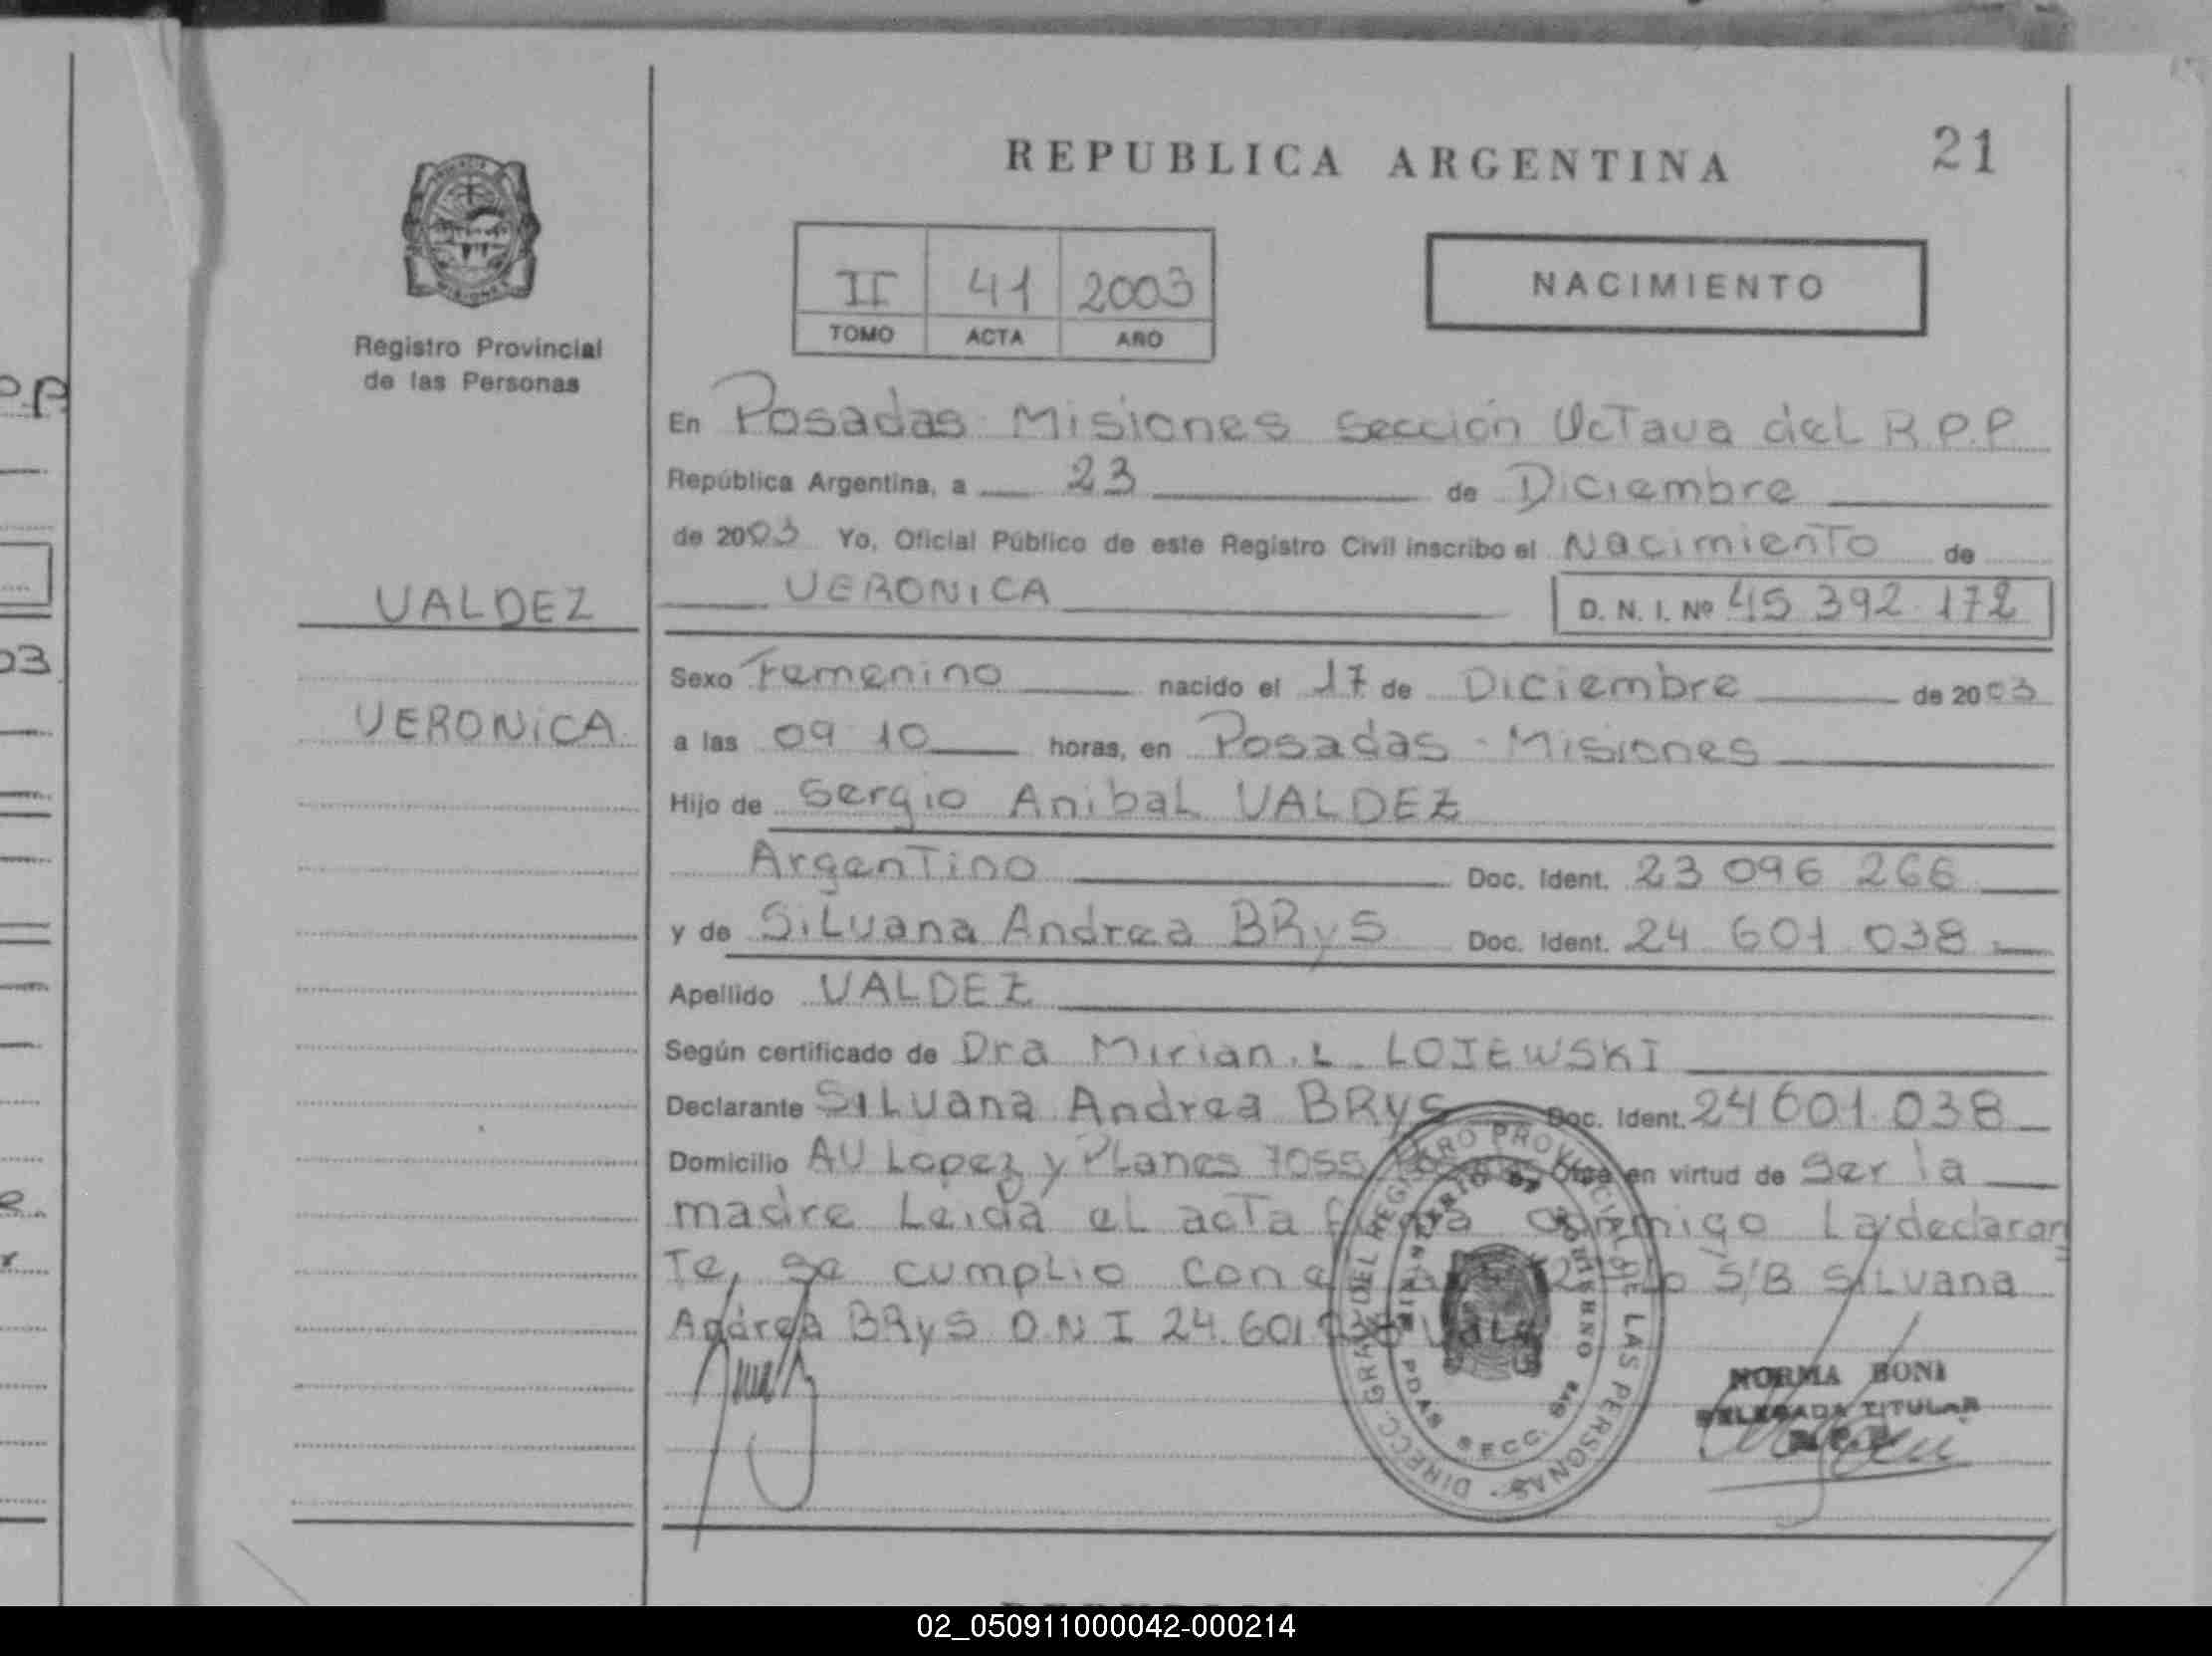 REPUBLICA ARGENTINA 21
II 41 2003
TOMO ACTA AÑO
NACIMIENTO
Registro Provincial
de las Personas
VALDEZ
VERONiCA
En Posadas Misiones Sección Octava del R.P.P
República Argentina, a 23 de Diciembre
de 2003 Yo, Oficial Público de este Registro Civil inscribo el Nacimiento de
VERONiCA D. N. I. Nº 45 392 172
Sexo Femenino nacido el 17 de Diciembre de 2003
a las 09 10 horas, en Posadas - Misiones
Hijo de Sergio Anibal VALDEZ
Argentino Doc. Ident. 23 096 266
y de Silvana Andrea BRyS Doc. Ident. 24 601 038
Apellido VALDEZ
Según certificado de Dra Mirian L LOJEWSKI
Declarante Silvana Andrea BRyS Doc. Ident. 24 601.038
Domicilio AV Lopez y Planes 7055 Obra en virtud de Ser la
madre Leida el acta firma conmigo La declaran
Te, se cumplio con S/B Silvana
Andrea BRyS D.N.I 24.601.038 Vale
DIRECC. GRAL DEL REGISTRO PROVINCIAL DE LAS PERSONAS
MINISTERIO DE GOBIERNO
PDAS SECC. 8va
NORMA BONI
DELEGADA TITULAR
R.P.P
02_050911000042-000214